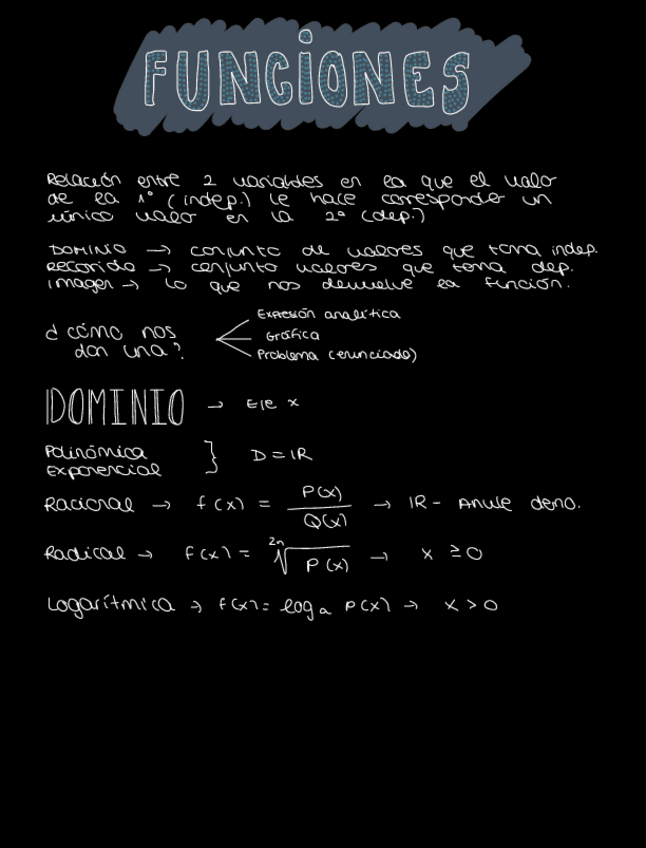 FUNCIONES
Relación entre 2 variables en la que el valor
de la 1ª (indep.) le hace corresponder un
único valor en la 2ª (dep.)
DOMINIO → conjunto de valores que toma indep.
Recorrido → conjunto valores que toma dep.
Imagen → lo que nos devuelve la función.
¿cómo nos
dan una?
Expresión analítica
Gráfica
Problema (enunciado)
DOMINIO → Eje x
Polinómica
Exponencial } D = IR
Racional → f(x) = P(x)/Q(x) → IR - Anule deno.
Radical → f(x) = 2n√P(x) → x ≥ 0
Logarítmica → f(x) = log a P(x) → x > 0